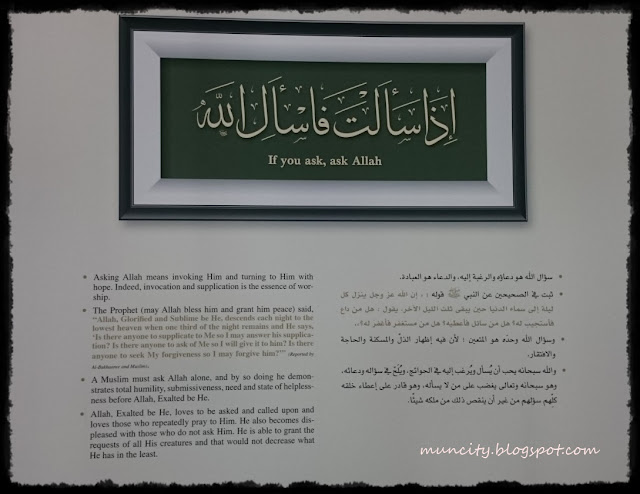 إِذَا سَأَلْتَ فَاسْأَلِ اللَّهَ
If you ask, ask Allah
• Asking Allah means invoking Him and turning to Him with
hope. Indeed, invocation and supplication is the essence of wor-
ship.
• The Prophet (may Allah bless him and grant him peace) said,
"Allah, Glorified and Sublime be He, descends each night to the
lowest heaven when one third of the night remains and He says,
'Is there anyone to supplicate to Me so I may answer his supplica-
tion? Is there anyone to ask of Me so I will give it to him? Is there
anyone to seek My forgiveness so I may forgive him?'" (Reported by
Al-Bukhaaree and Muslim).
• A Muslim must ask Allah alone, and by so doing he demon-
strates total humility, submissiveness, need and state of helpless-
ness before Allah, Exalted be He.
• Allah, Exalted be He, loves to be asked and called upon and
loves those who repeatedly pray to Him. He also becomes dis-
pleased with those who do not ask Him. He is able to grant the
requests of all His creatures and that would not decrease what
He has in the least.
• سؤال الله هو دعاؤه والرغبة إليه، والدعاء هو العبادة.
• ثبت في الصحيحين عن النبي ﷺ قوله : ، إن الله عز وجل ينزل كل
ليلة إلى سماء الدنيا حين يبقى ثلث الليل الآخر، يقول : هل من داع
فأستجيب له؟ هل من سائل فأعطيه؟ هل من مستغفر فأغفر له؟..
• وسؤال الله وحده هو المتعين ؛ لأن فيه إظهار الذلّ والمسكنة والحاجة
والافتقار.
• والله سبحانه يحب أن يُسأل ويُرغب إليه في الحوائج، ويُلحّ في سؤاله ودعائه،
وهو سبحانه وتعالى يغضب على من لا يسأله، وهو قادر على إعطاء خلقه
كلّهم سؤلهم من غير أن ينقص ذلك من ملكه شيئًا.
muncity.blogspot.com